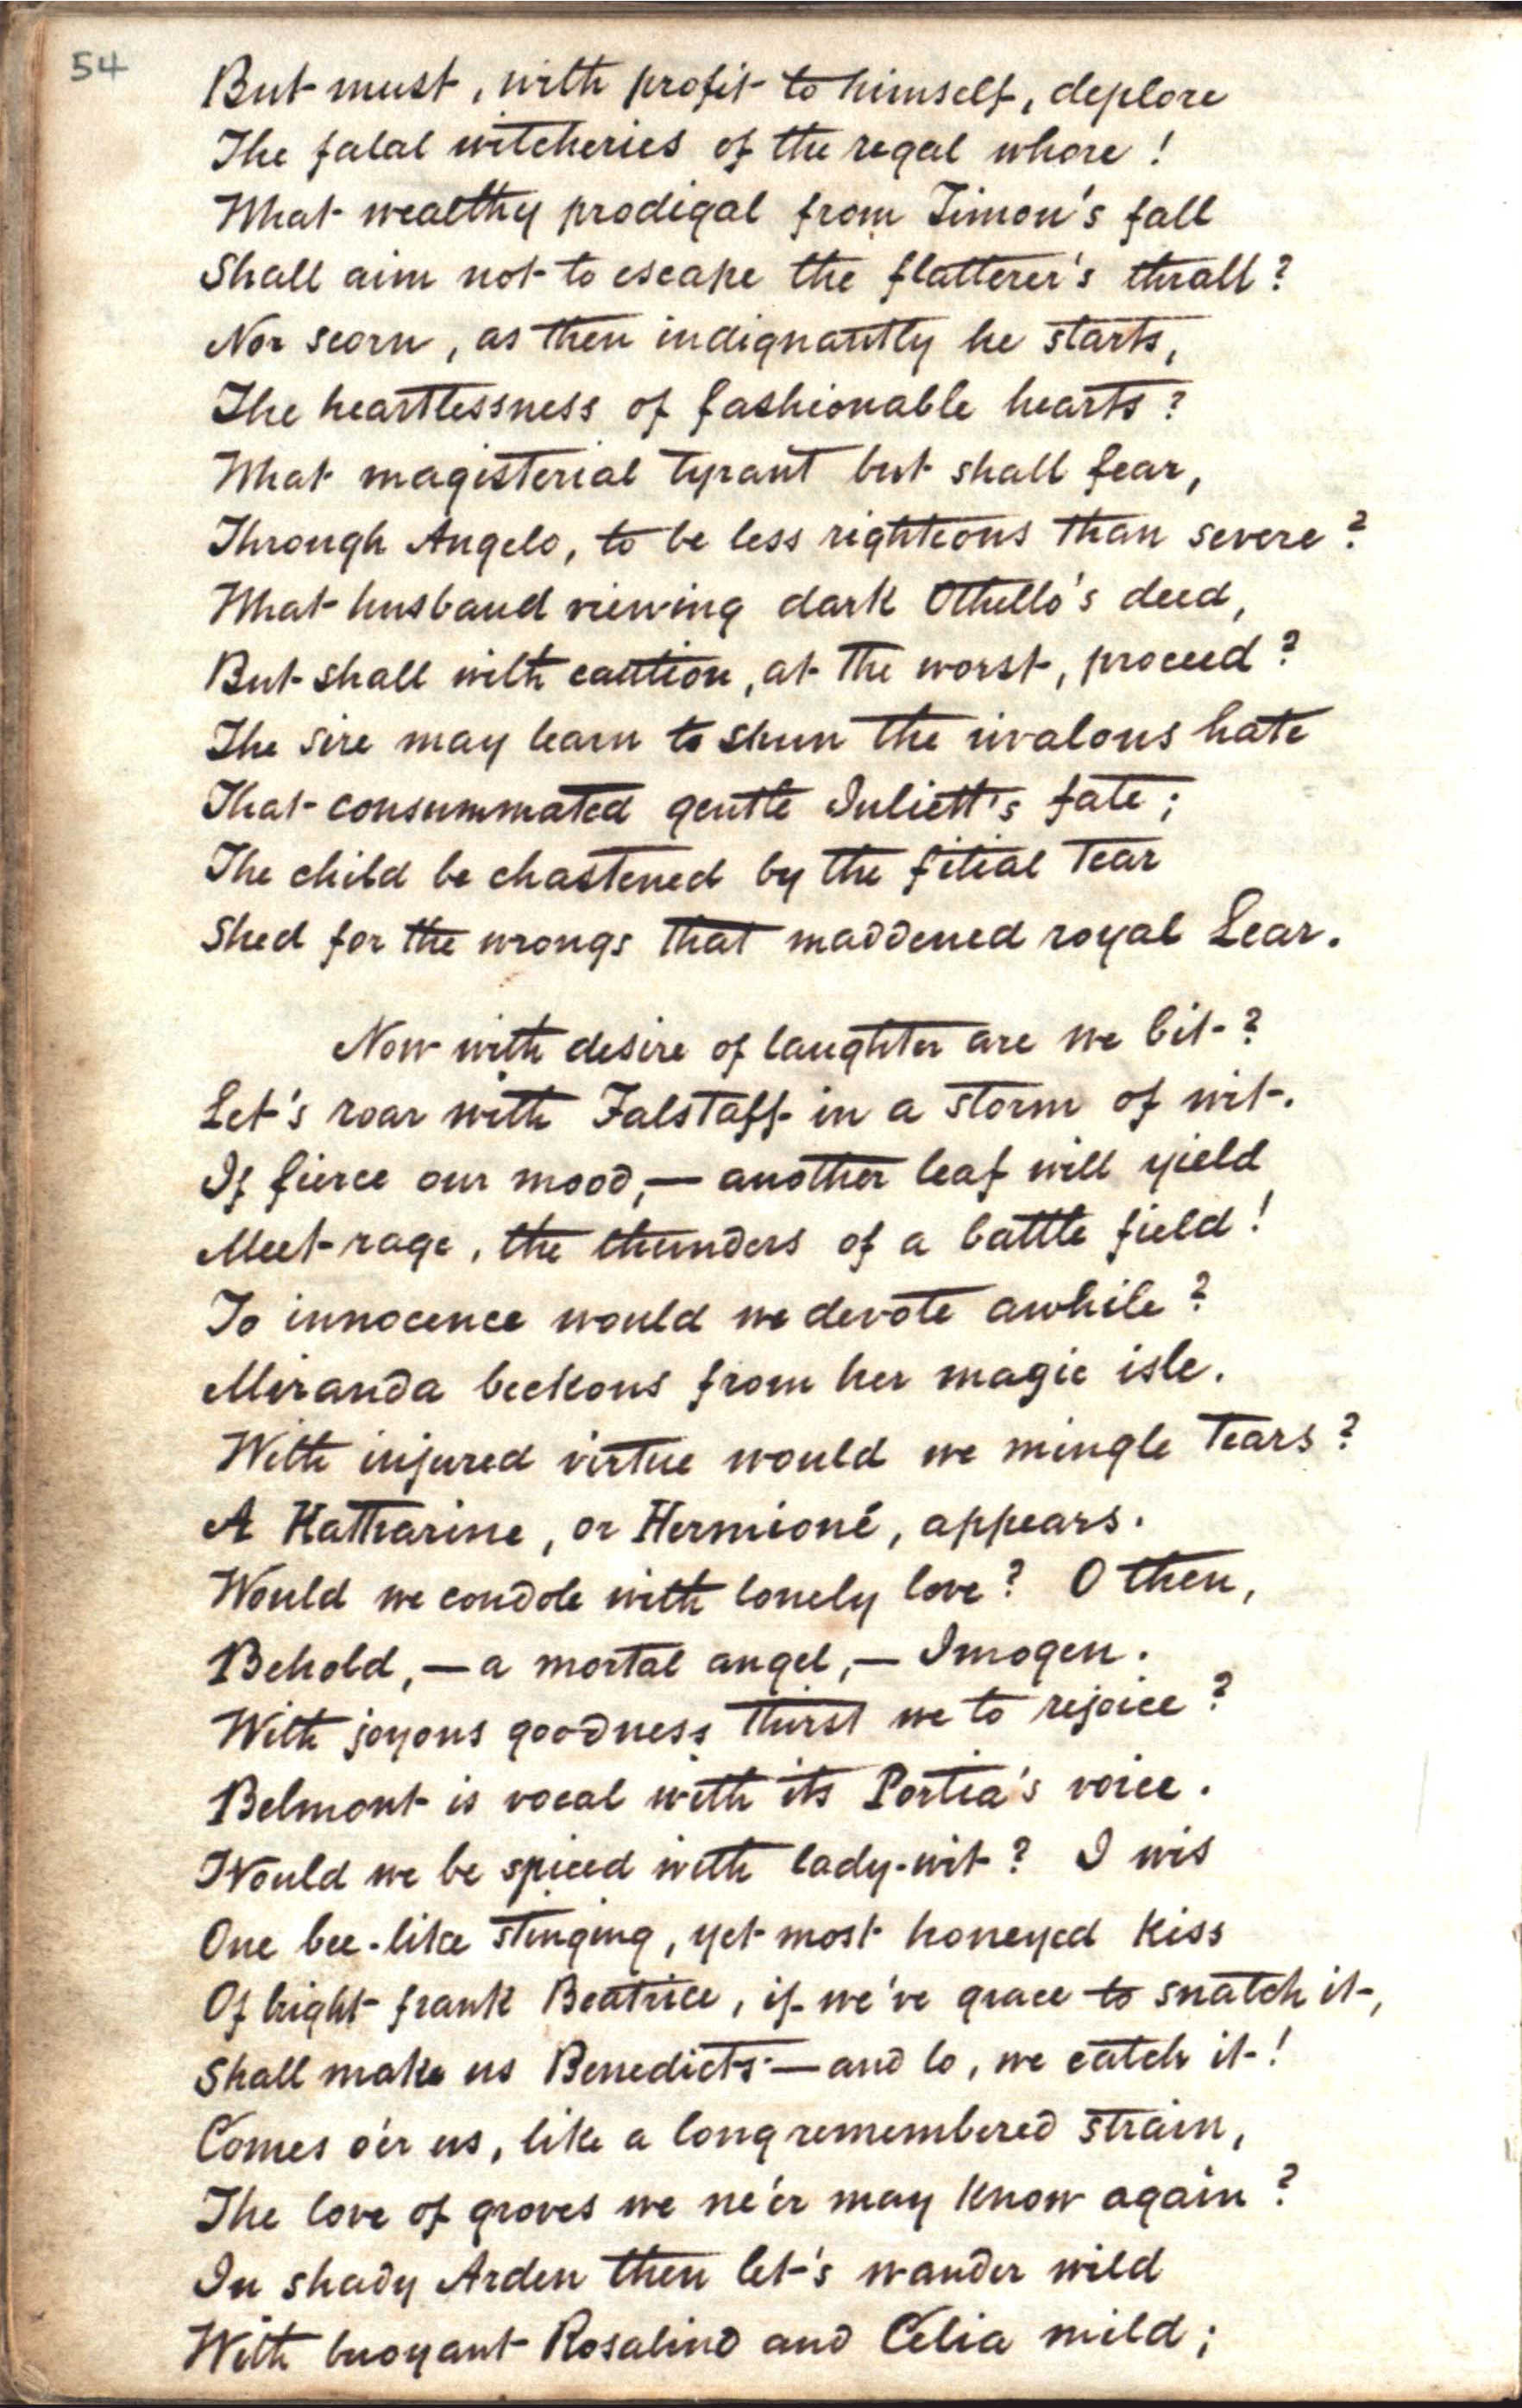 54
But must, with profit to himself, deplore
The fatal witcheries of the regal whore!
What wealthy prodigal from Timon's fall
Shall aim not to escape the flatterer's thrall?
Nor scorn, as then indignantly he starts,
The heartlessness of fashionable hearts?
What magisterial tyrant but shall fear,
Through Angelo, to be less righteous than severe?
What husband viewing dark Othello's deed,
But shall with caution, at the worst, proceed?
The sire may learn to shun the rivalous hate
That consummated gentle Juliett's fate;
The child be chastened by the filial tear
Shed for the wrongs that maddened royal Lear.
Now with desire of laughter are we bit?
Let's roar with Falstaff in a storm of wit.
If fierce our mood,—another leaf will yield
Meet rage, the thunders of a battle field!
To innocence would we devote awhile?
Miranda beckons from her magic isle.
With injured virtue would we mingle tears?
A Katharine, or Hermioné, appears.
Would we condole with lonely love? O then,
Behold,—a mortal angel,—Imogen.
With joyous goodness thirst we to rejoice?
Belmont is vocal with its Portia's voice.
Would we be spiced with lady-wit? I wis
One bee-like stinging, yet most honeyed kiss
Of bright frank Beatrice, if we've grace to snatch it,
Shall make us Benedicts—and lo, we catch it!
Comes o'er us, like a long remembered strain,
The love of groves we ne'er may know again?
In shady Arden then let's wander wild
With buoyant Rosalind and Celia mild;